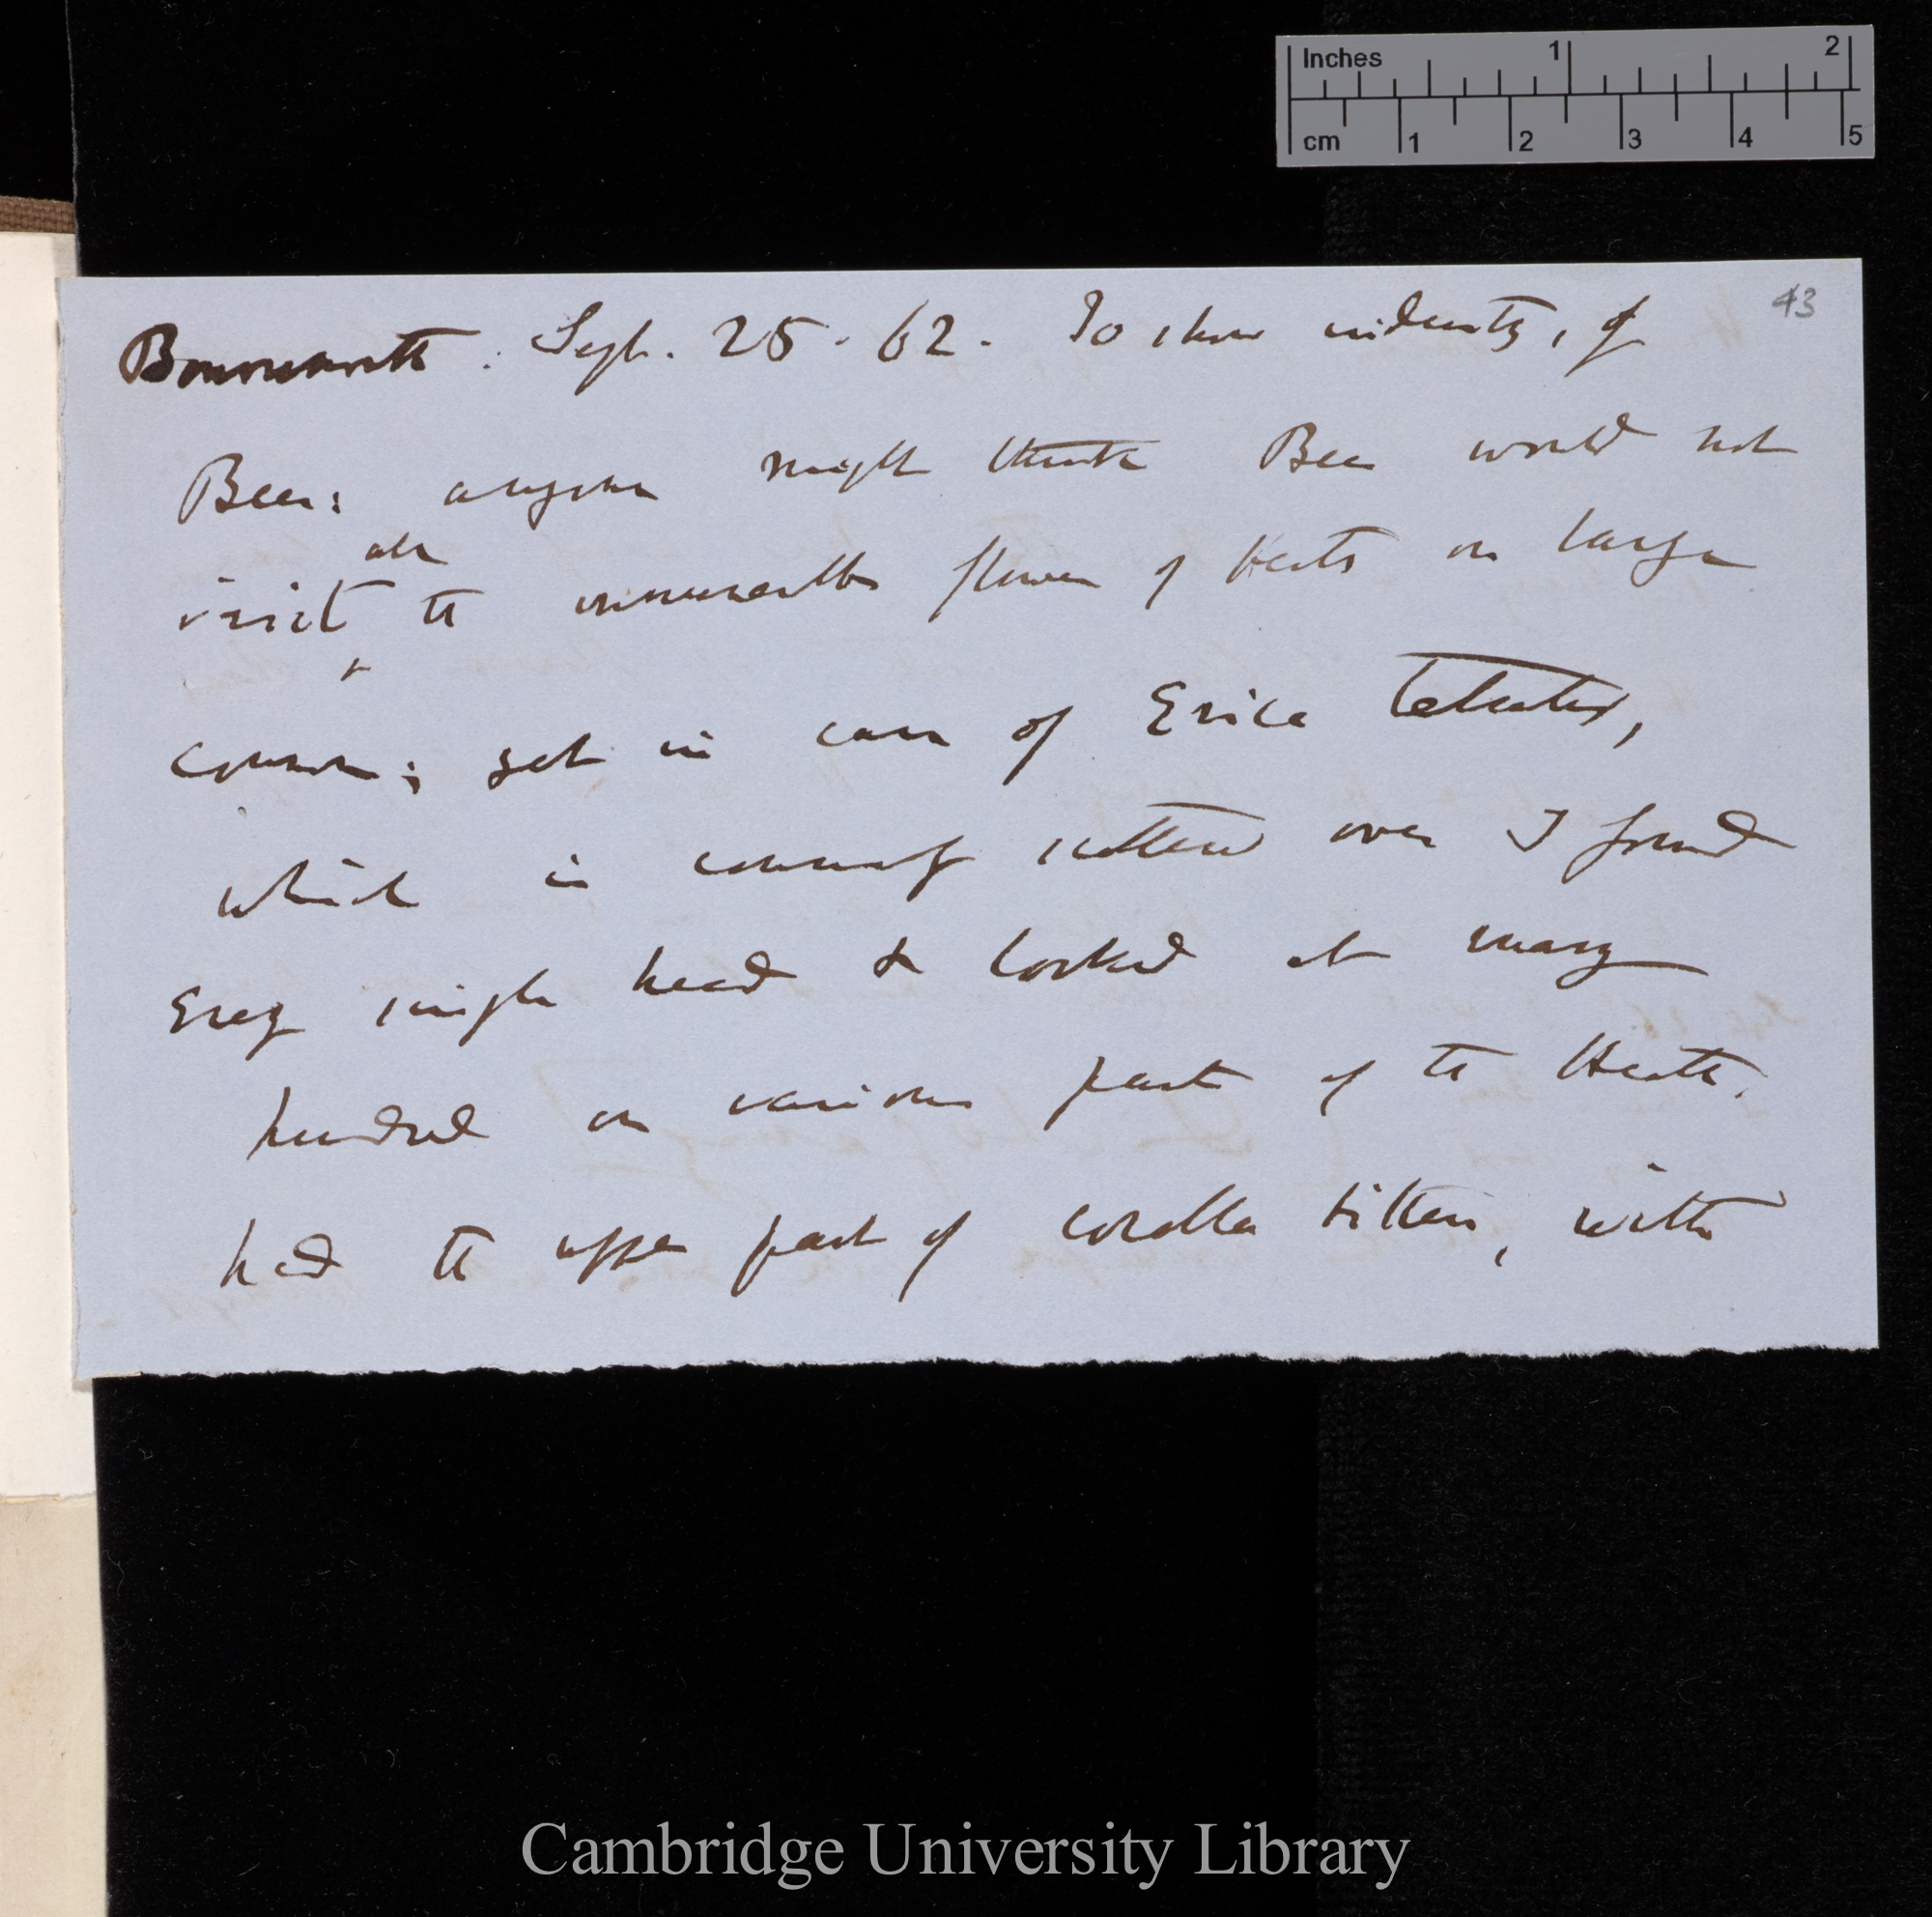 Inches 1 2
cm 1 2 3 4 5
43
Bournemouth. Sept. 25. 62. To show industry, of
Bees: anyone might think Bees would not
visit all the innumerable flowers of Heaths on large
common; yet in case of Erica tetralix,
which is commonly scattered over I found
Every single head & looked at many
hundred on various part of the Heath.
had the upper part of corolla bitten, with
Cambridge University Library